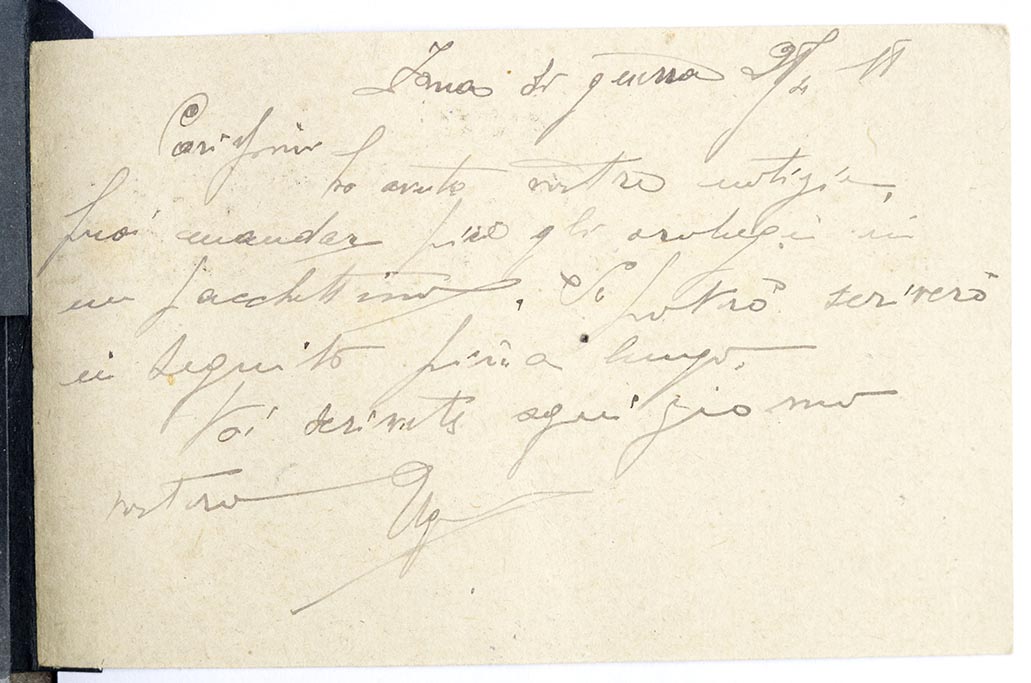 Zona di guerra
Cari
ho avuto vostre notizie,
puoi mandar pure gli orologi in
un pacchettino. Se potrò scriverò
in seguito più a lungo.
Voi scrivete ogni giorno
vostro Ugo